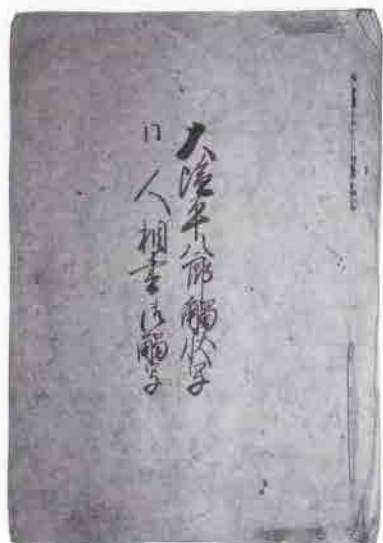 大塩平八郎觸状写
同人相書御觸写